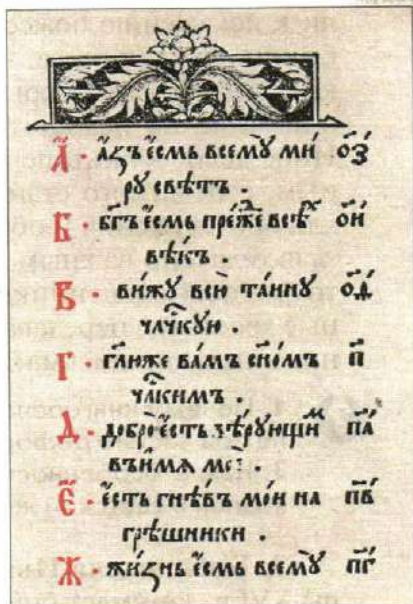 А҃ · а҆́зъ є҆́смь всемꙋ̀ ми́ о҃з
рꙋ свѣ́тъ .
Б · бг҃ъ є҆́смь пре́жⷣе всѣ́хъ о҃и
вѣ́къ .
В · ви́жꙋ всю̀ та́инꙋ о҃ѳ
чл҃чкꙋю .
Г · гл҃ю́же ва́мъ сн҃о́мъ п҃
чл҃кимъ .
Д · добро̀ є҆́сть вѣ́рꙋющиⷨ п҃а
въ и҆́мѧ моѐ .
Є҆ · є҆́сть гнѣ́въ мо́и на п҃в
грѣ́шники .
Ж · жи́знь є҆́смь всемꙋ̀ п҃г